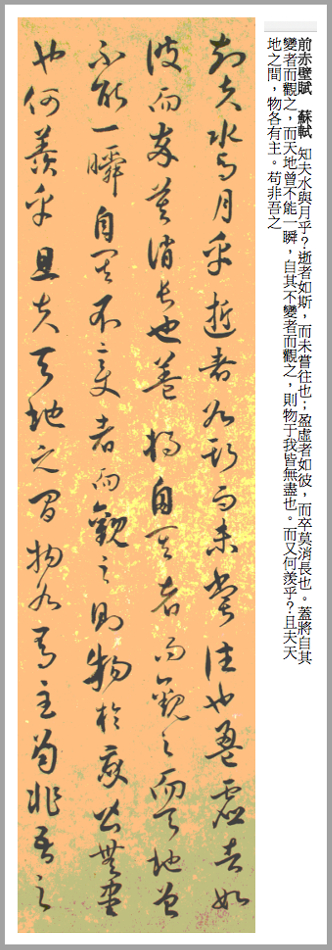 前赤壁賦　蘇軾 知夫水與月乎?逝者如斯,而未嘗往也;盈虛者如彼,而卒莫消長也。蓋將自其
變者而觀之,而天地曾不能一瞬,自其不變者而觀之,則物于我皆無盡也。而又何羨乎?且夫天
地之間,物各有主。苟非吾之
知夫水与月乎逝者如斯而未嘗往也盈虛者如
彼而卒莫消長也蓋將自其者而觀之而天地曾
不能一瞬自其不變者而觀之則物於我皆無盡
也何羨乎且夫天地之間物各有主苟非吾之